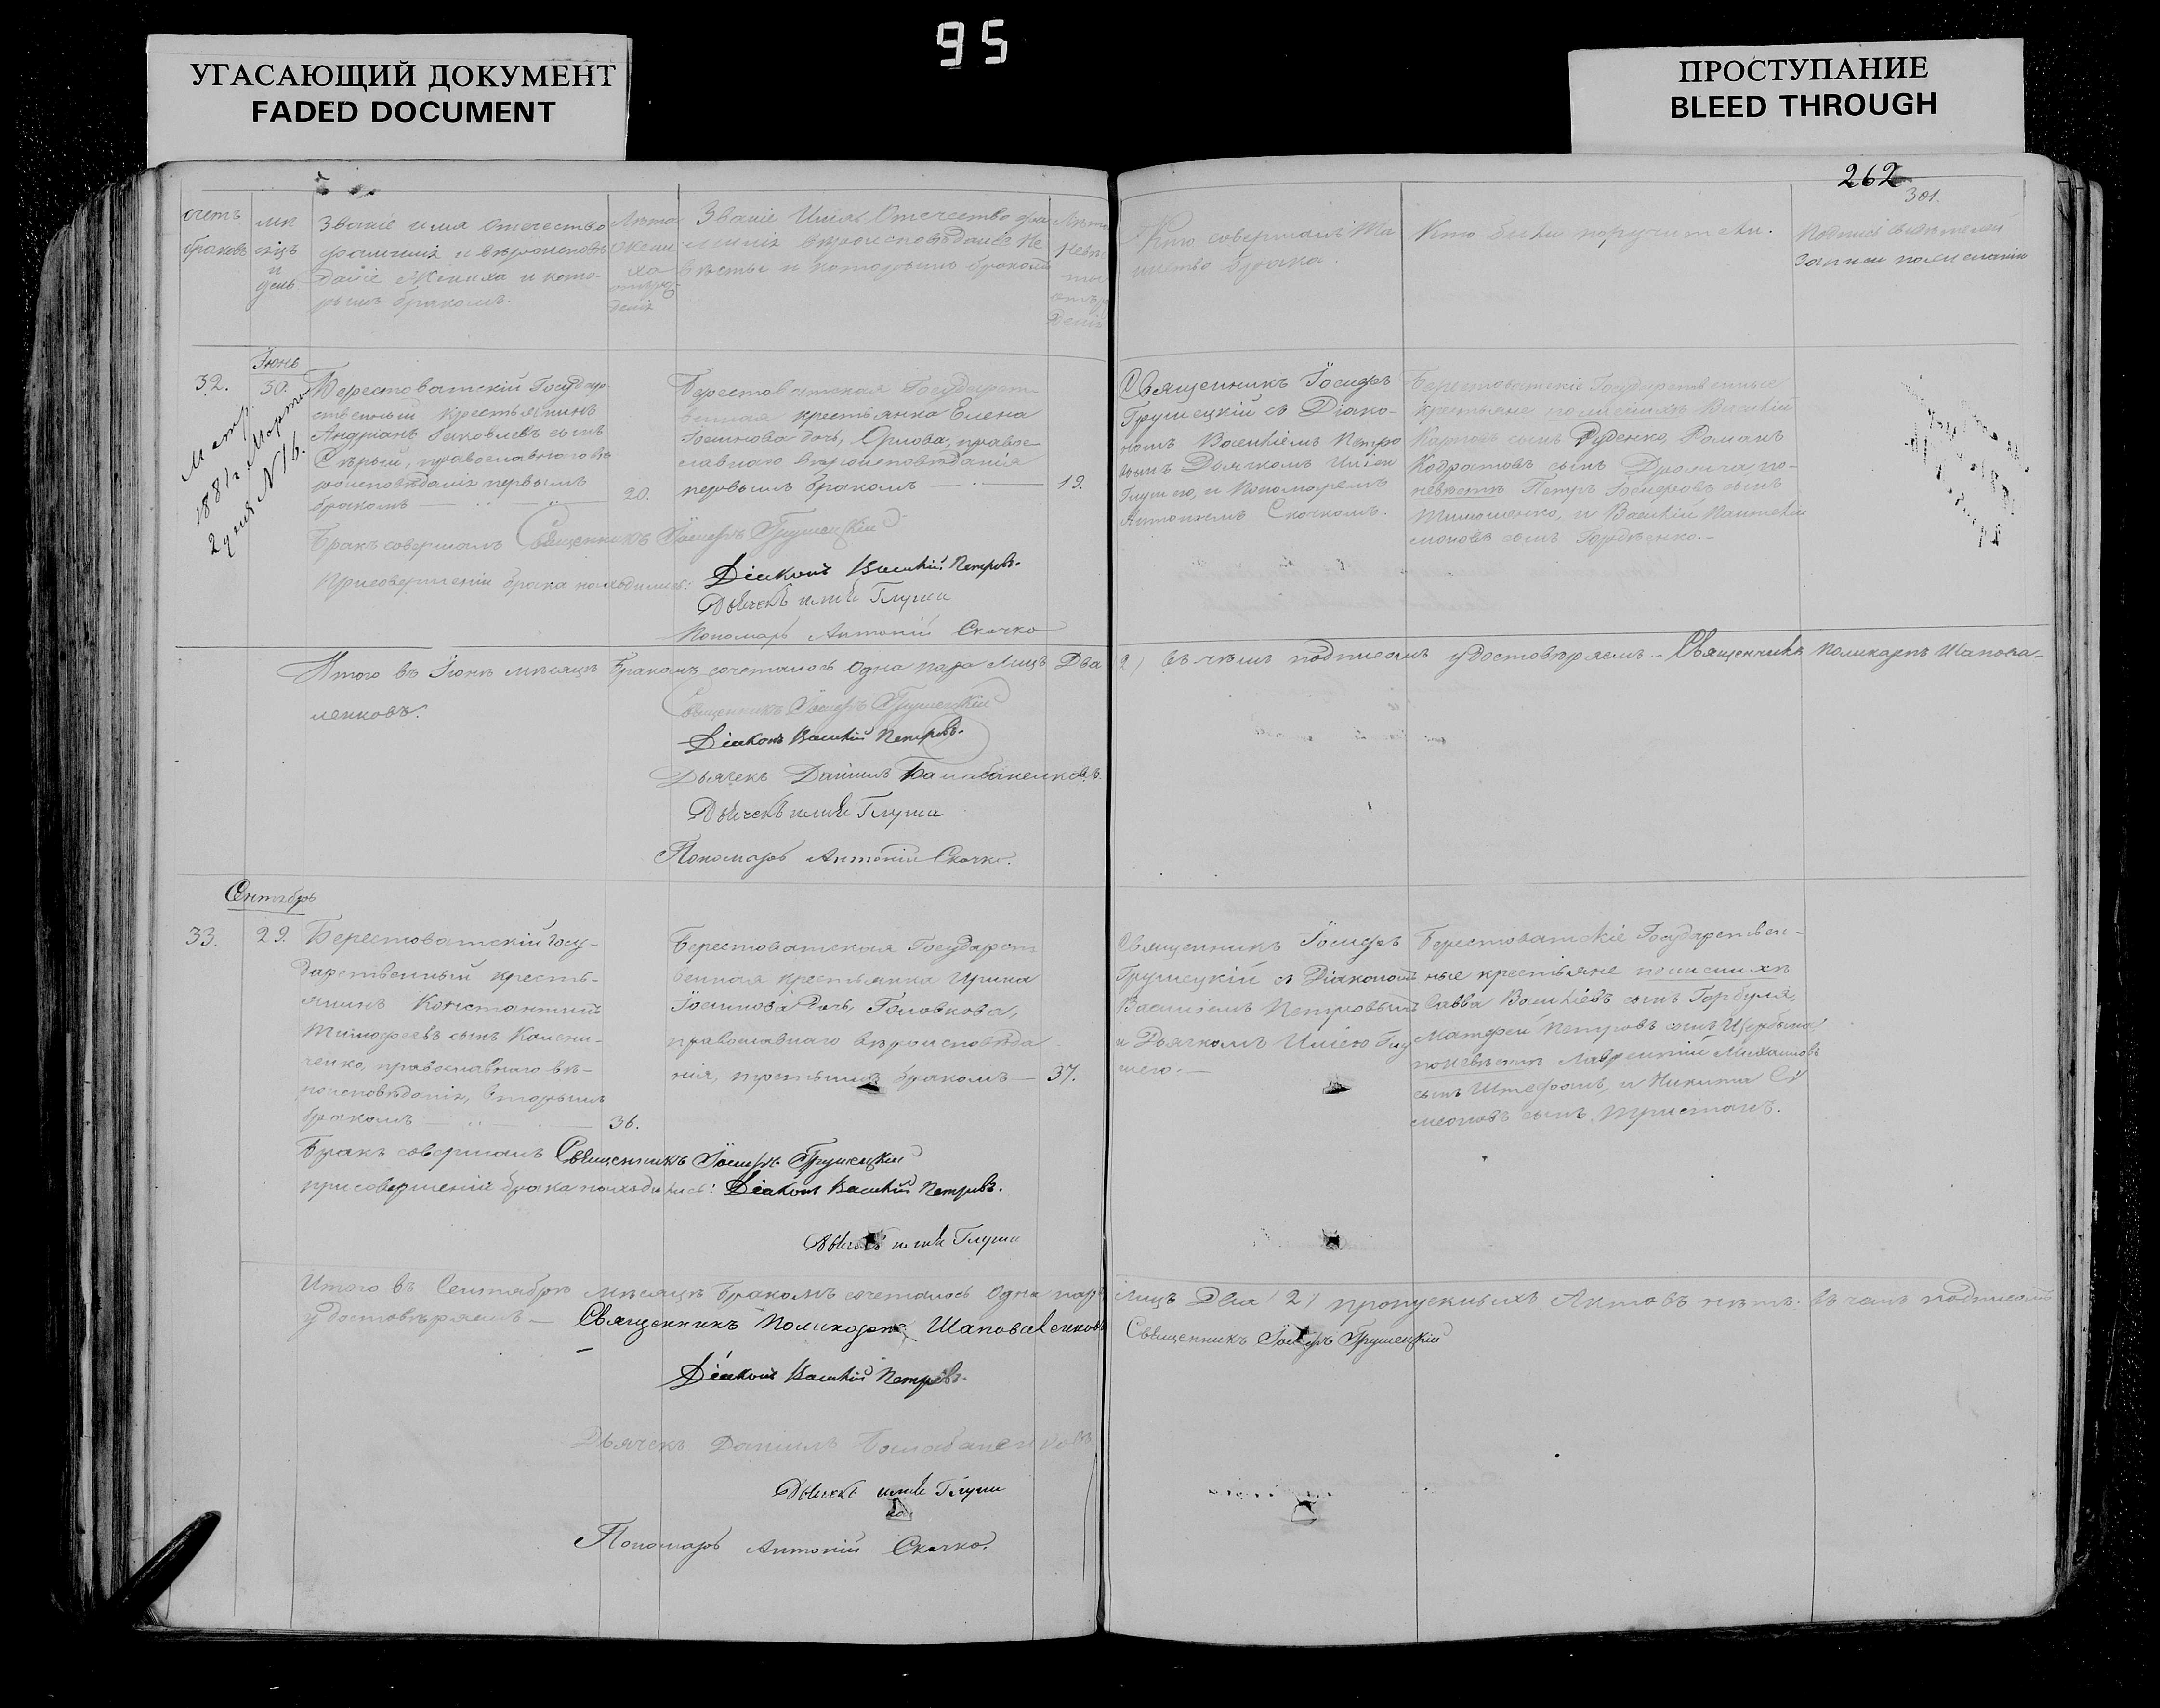 95
УГАСАЮЩИЙ ДОКУМЕНТ
FADED DOCUMENT
ПРОСТУПАНИЕ
BLEED THROUGH
262
301.
счетъ
браковъ
мѣ
сяцъ
и
день.
Званіе имя отечество
фамилія и вѣроисповѣ
даніе Жениха и кото-
рымъ бракомъ.
Лѣта
Жени
ха
Званіе Имя, Отечество фа
милія вѣроисповѣданіе Не
вѣсты и которымъ бракомъ
Лѣта
Невѣс
ты
Кто совершалъ Та
инство брака.
Кто были поручители.
Подпись свидѣтелей
записи по желанію
Іюнь
32.
30.
Метр.
1881г Марта
2 дня N 16.
Берестоватскій Государ
ственный крестьянинъ
Андріанъ Яковлевъ сынъ
Сѣрый, православнаго вѣ
роисповѣданія первымъ
бракомъ
20.
Берестоватская Государст-
венная крестьянка Елена
Іосифова дочь, Орлова, право-
славнаго вѣроисповѣданія
первымъ бракомъ
19.
Священникъ Іосифъ
Грушецкій съ Діако-
номъ Василіемъ Петро
вымъ Дьячкомъ Иліею
Глушею, и Пономаремъ
Антоніемъ Скочкомъ.
Берестоватскіе Государственные
крестьяне по женихѣ Василій
Карповъ сынъ Руденко, Романъ
Кодратовъ сынъ по-
невѣстѣ Петръ Іосифовъ сынъ
Тимошенко, и Василій Пантелей
моновъ сынъ Гордѣенко.
Бракъ совершалъ Священникъ Іосифъ Грушецкій
При совершеніи брака находились: Діаконъ Василій Петровъ.
Дьячекъ илія Глуша
Пономарь Антоній Скочко
Итого въ Іюнѣ мѣсяцѣ бракомъ сочеталось Одна пара Лицъ Два (2) въ чемъ подписомъ удостовѣряемъ - Священникъ Поликарпъ Шапова-
ленковъ.
Священникъ Іосифъ Грушецкій
Діаконъ Василій Петровъ.
Дьячекъ Даніилъ Балабаненковъ.
Дьячекъ илія Глуша
Пономарь Антоній Скочко.
Сентябрь
33.
29.
Берестоватскій Госу-
дарственный кресть-
янинъ Константинъ
Тимофеевъ сынъ
ченко, православнаго вѣ-
роисповѣданія, вторымъ
бракомъ
36.
Берестоватская Государст
венная крестьянка Ирина
Іосифова дочь, Головкова,
православнаго вѣроисповѣда
нія, третьимъ бракомъ
37.
Священникъ Іосифъ
Грушецкій съ Діакономъ
Василіемъ Петровымъ
и Дьячкомъ Иліею Глу
шею.
Берестоватскіе Государствен-
ные крестьяне по женихѣ
Савва Василіевъ сынъ Горбуля,
Матфей Петровъ сынъ Щербина,
по невѣстѣ Лаврентій Михаиловъ
сынъ Штефанъ, и Никита Си
меоновъ сынъ Тристанъ.
Бракъ совершалъ Священникъ Іосифъ Грушецкій
при совершеніи брака находились: Діаконъ Василій Петровъ.
Дьячекъ илія Глуша
Итого въ Сентябрѣ мѣсяцѣ бракомъ сочеталось Одна пара лицъ Два (2) Актовъ нѣтъ. Въ чемъ подписомъ
удостовѣряемъ - Священникъ Поликарпъ Шаповаленковъ
Священникъ Іосифъ Грушецкій
Діаконъ Василій Петровъ.
Дьячекъ Даніилъ Балабаненковъ
Дьячекъ илія Глуша
Пономарь Антоній Скочко.